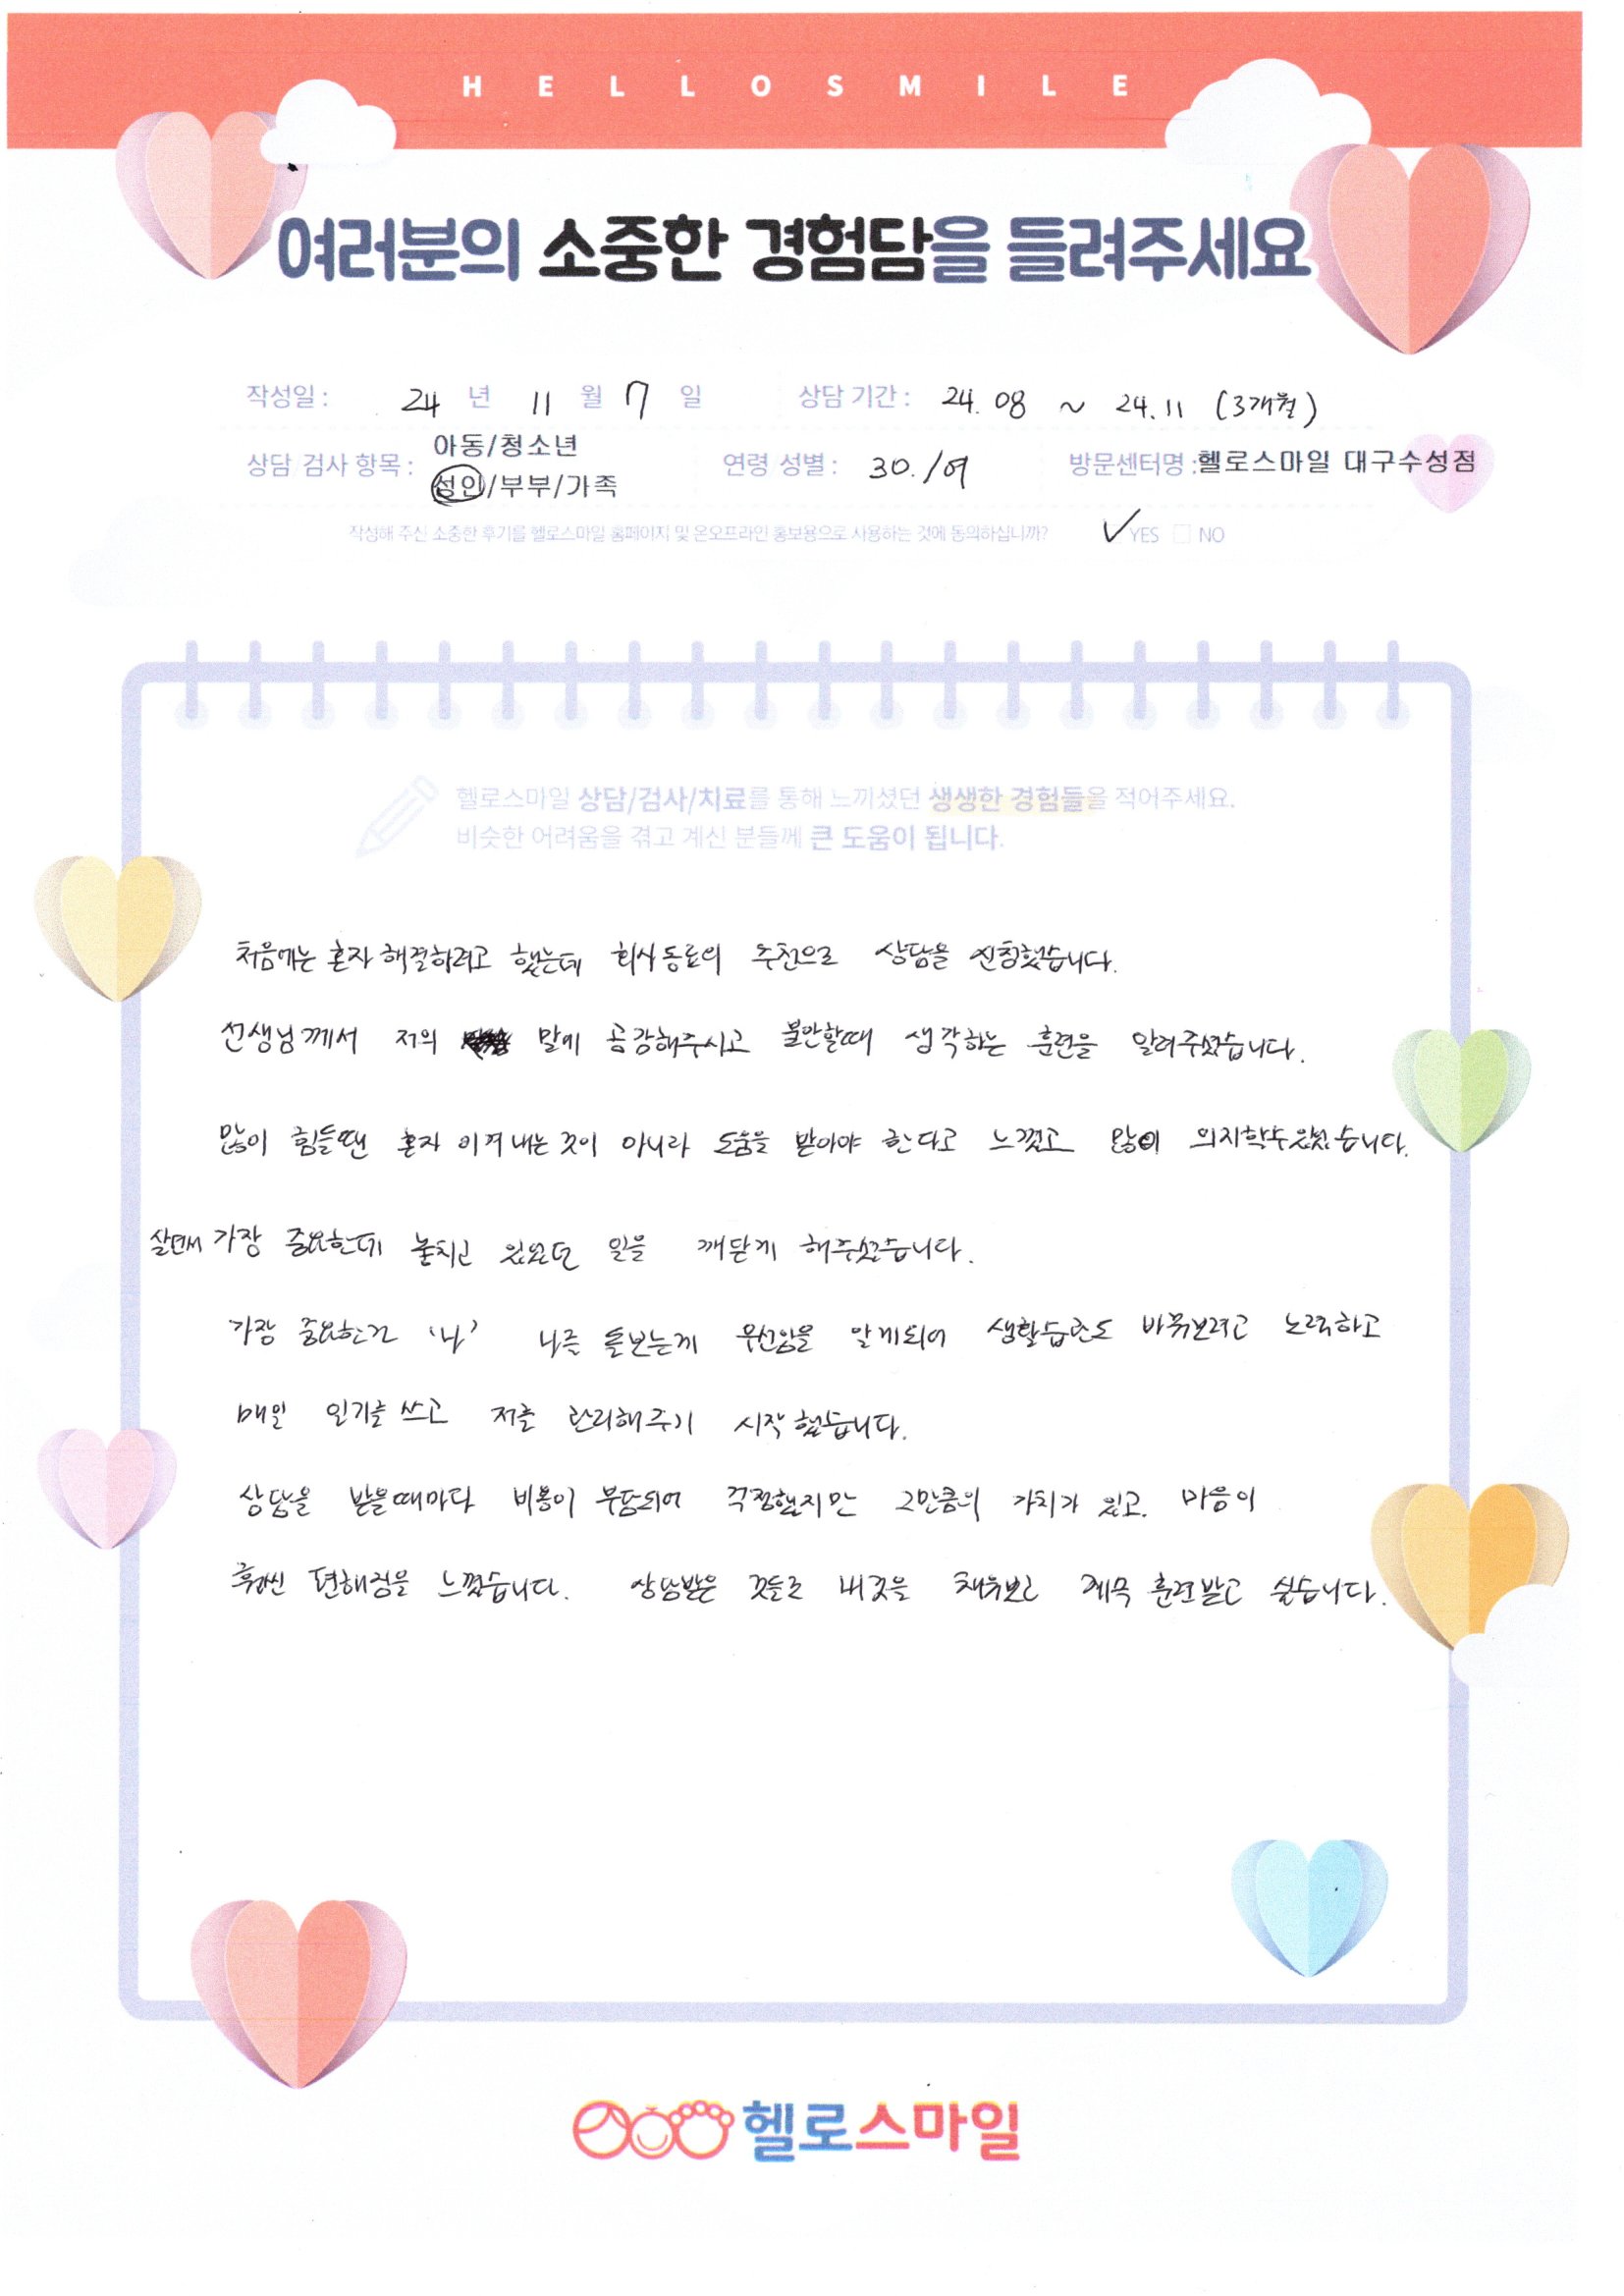 HELLOSMILE
여러분의 소중한 경험담을 들려주세요
작성일 : 24 년 11 월 7 일 상담 기간 : 24. 08 ~ 24. 11 (3개월)
아동/청소년
상담 검사 항목 : 성인/부부/가족 연령 성별 : 30. /여 방문센터명 : 헬로스마일 대구수성점
작성해 주신 소중한 후기를 헬로스마일 홈페이지 및 온오프라인 홍보용으로 사용하는 것에 동의하십니까? YES NO
헬로스마일 상담/검사/치료를 통해 느끼셨던 생생한 경험들을 적어주세요.
비슷한 어려움을 겪고 계신 분들께 큰 도움이 됩니다.
처음에는 혼자 해결하려고 했는데 회사동료의 추천으로 상담을 신청했습니다.
선생님께서 저의 말에 공감해주시고 불안할때 생각하는 훈련을 알려주셨습니다.
많이 힘들땐 혼자 이겨내는 것이 아니라 도움을 받아야 한다고 느꼈고 많이 의지할수있었습니다.
살면서 가장 중요한데 놓치고 있었던 일을 깨닫게 해주셨습니다.
가장 중요한건 '나' 나를 돌보는게 우선임을 알게되어 생활습관도 바꿔보려고 노력하고
매일 일기를 쓰고 저를 관리해주기 시작했습니다.
상담을 받을때마다 비용이 부담되어 걱정했지만 그만큼의 가치가 있고. 마음이
훨씬 편해짐을 느꼈습니다. 상담받은 것들로 내것을 채워보고 계속 훈련받고 싶습니다.
헬로스마일